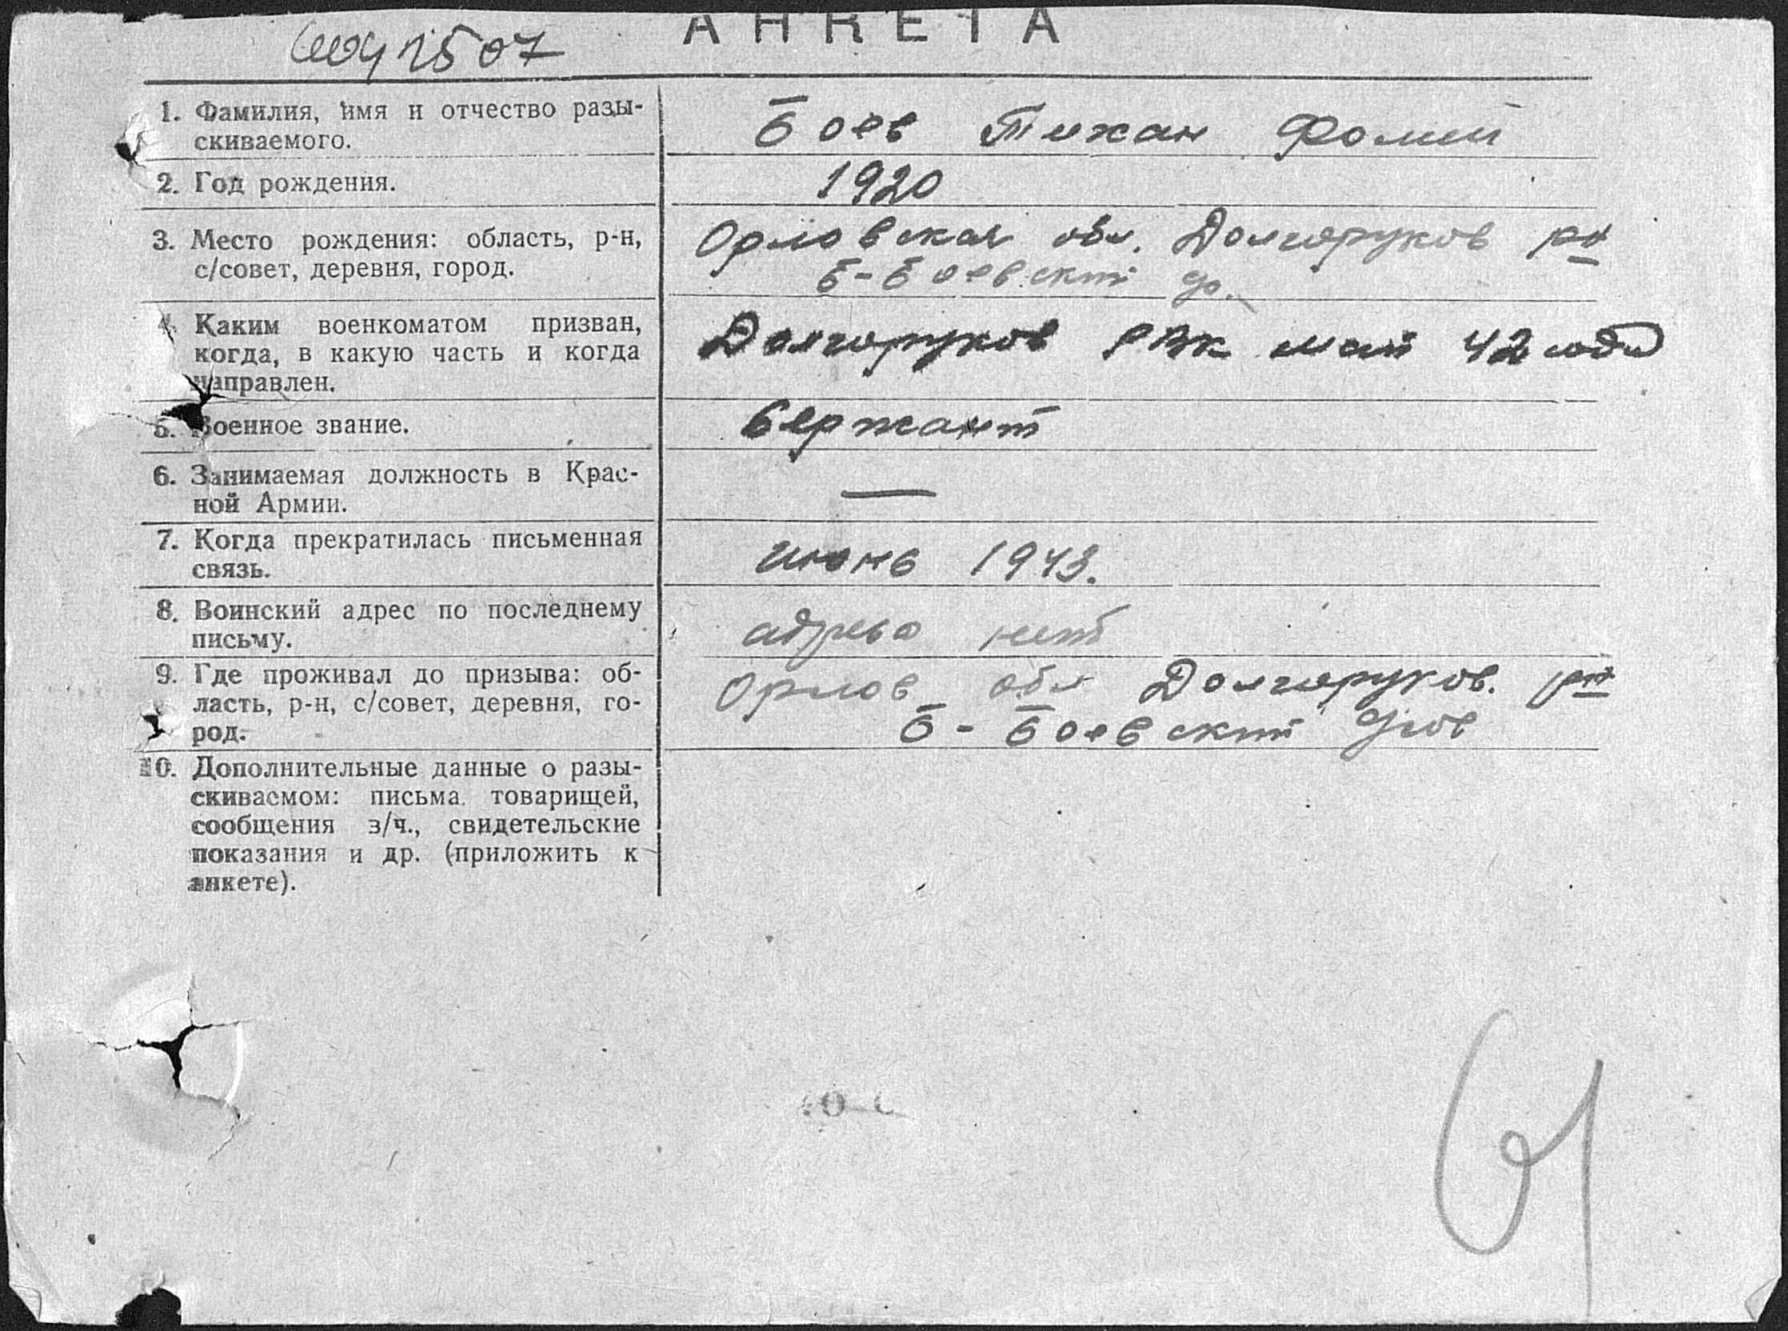 АНКЕТА
1. Фамилия, имя и отчество разы-
скиваемого.
Боев Тихан Фомич
2. Год рождения.
1920
3. Место рождения: область, р-н,
с/совет, деревня, город.
Орловская обл. Долгоруков рн
Б-Боевский
4. Каким военкоматом призван,
когда, в какую часть и когда
направлен.
Долгоруков РВК май 42 года
5. Военное звание.
Сержант
6. Занимаемая должность в Крас-
ной Армии.
—
7. Когда прекратилась письменная
связь.
июнь 1943.
8. Воинский адрес по последнему
письму.
адреса нет
9. Где проживал до призыва: об-
ласть, р-н, с/совет, деревня, го-
род.
Орлов обл Долгоруков. рн
Б-Боевский
10. Дополнительные данные о разы-
скиваемом: письма товарищей,
сообщения з/ч., свидетельские
показания и др. (приложить к
анкете).
61